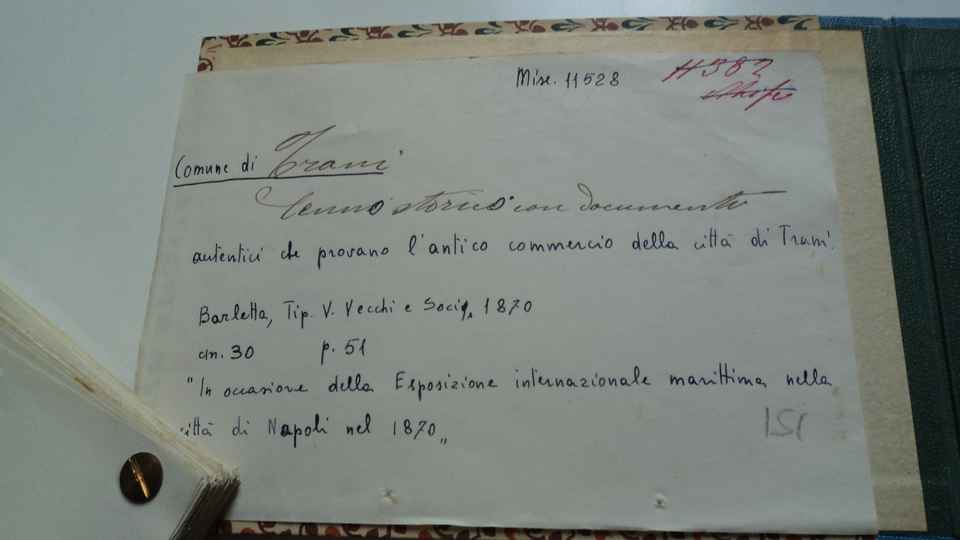 Misc. 11528
H 382
Comune di Trani
Cenno storico con documenti
autentici che provano l'antico commercio della città di Trani.
Barletta, Tip. V. Vecchi e Soci, 1870
cm. 30 p. 51
"In occasione della Esposizione internazionale marittima nella
città di Napoli nel 1870„
ISI